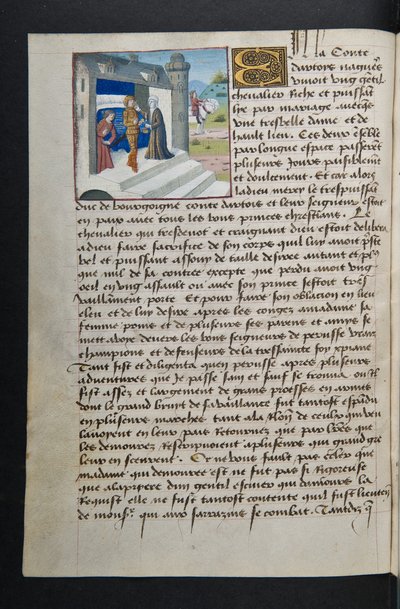 En la Conte
dartois nagueres
vivoit ung gentil
chevalier Riche et puissant
lye par mariage avecques
une tresbelle dame et de
hault lieu. Ces deux ensemble
par longue espace passerent
plusieurs Jours paisiblement
et doulcement. Et car alors
la dieu mercy le trespuissant
duc de bourgoigne conte dartois et leur seigneur estoit
en paix avec tous les bons princes chrestians. Le
chevalier qui tresdevot et craignant dieu estoit delibera
a dieu faire sacrifice de son corps quil luy avoit preste
bel et puissant assouy de taille desiree autant et plus
que nul de sa contree excepte que perdu avoit ung
oeil en ung assault ou avec son prince sestoit tres
vaillamment porte Et pour faire son oblacion en lieu
esleu et de luy desire apres les congez a madame sa
femme prins et de plusieurs ses parens et amys se
mect a voye devers les bons seigneurs de perusse vraiz
champions et defenseurs de la tressaincte foy xpriane
Tant fist et diligenta quen perusse apres plusieurs
adventures que Je passe sain et sauf se trouva ou Il
fist assez et largement de grans proesses en armes
dont le grand bruyt de sa vaillance fut tantost espandu
en plusieurs marches tant a la Relacion de ceulx qui veu
lavoyent en leur pais Retournez que par lettres que
les demourez Rescripvoient a plusieurs qui grand gre
leur en sceurent. Or ne vous fault pas celer que
madame qui demouree est ne fut pas si Rigoreuse
que a la priere dun gentil escuier qui damours la
Requist elle ne fust tantost contente quil fust lieutenant
de monseigneur qui aux sarrazins se combat. Tandiz que